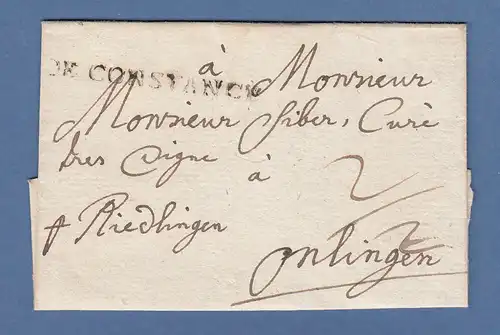 DE CONSTANCE
à Monsieur
Monsieur Siber, Curè
tres Digne
à
p Riedlingen
2
onlingen